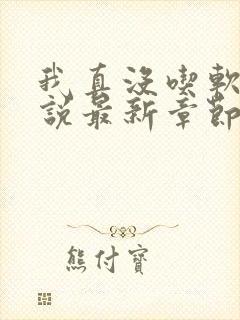 我真沒喫軟
說最新章節
熊付寶